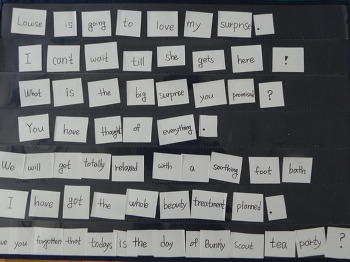 Louise is going to love my surprise.
I can't wait till she gets here !
What is the big surprise you promised ?
You have thought of everything.
We will get totally relaxed with a soothing foot bath
I have got the whole beauty treatment planned.
you forgotten that todays is the day of Bunny scout tea party ?